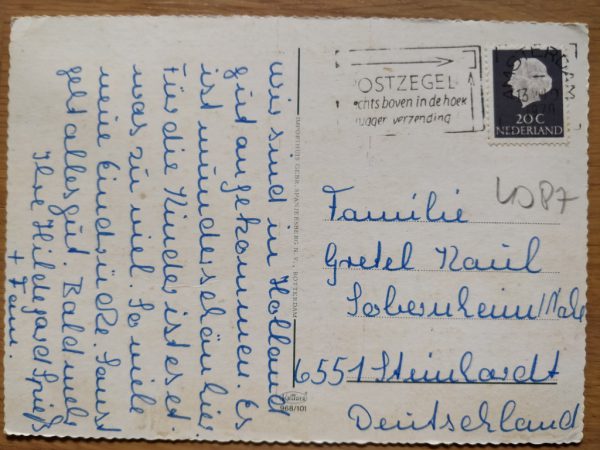 wir sind in Holland
gut angekommen. Es
ist wunderschön hier
Für die Kinder ist es et-
was zu viel. So viele
neue Eindrücke. Sonst
geht alles gut. Bald mehr
Ihre Hildegard Spieß
+ Fam.
IMPORTHUIS GEBR. SPANJERSBERG N.V., ROTTERDAM
968/101
POSTZEGEL
chts boven in de hoek
ugger verzending
AMSTERDAM
13
20 C
NEDERLAND
Familie
Gretel Kaul
Sobernheim/Nahe
6551 Steinhardt
Deutschland